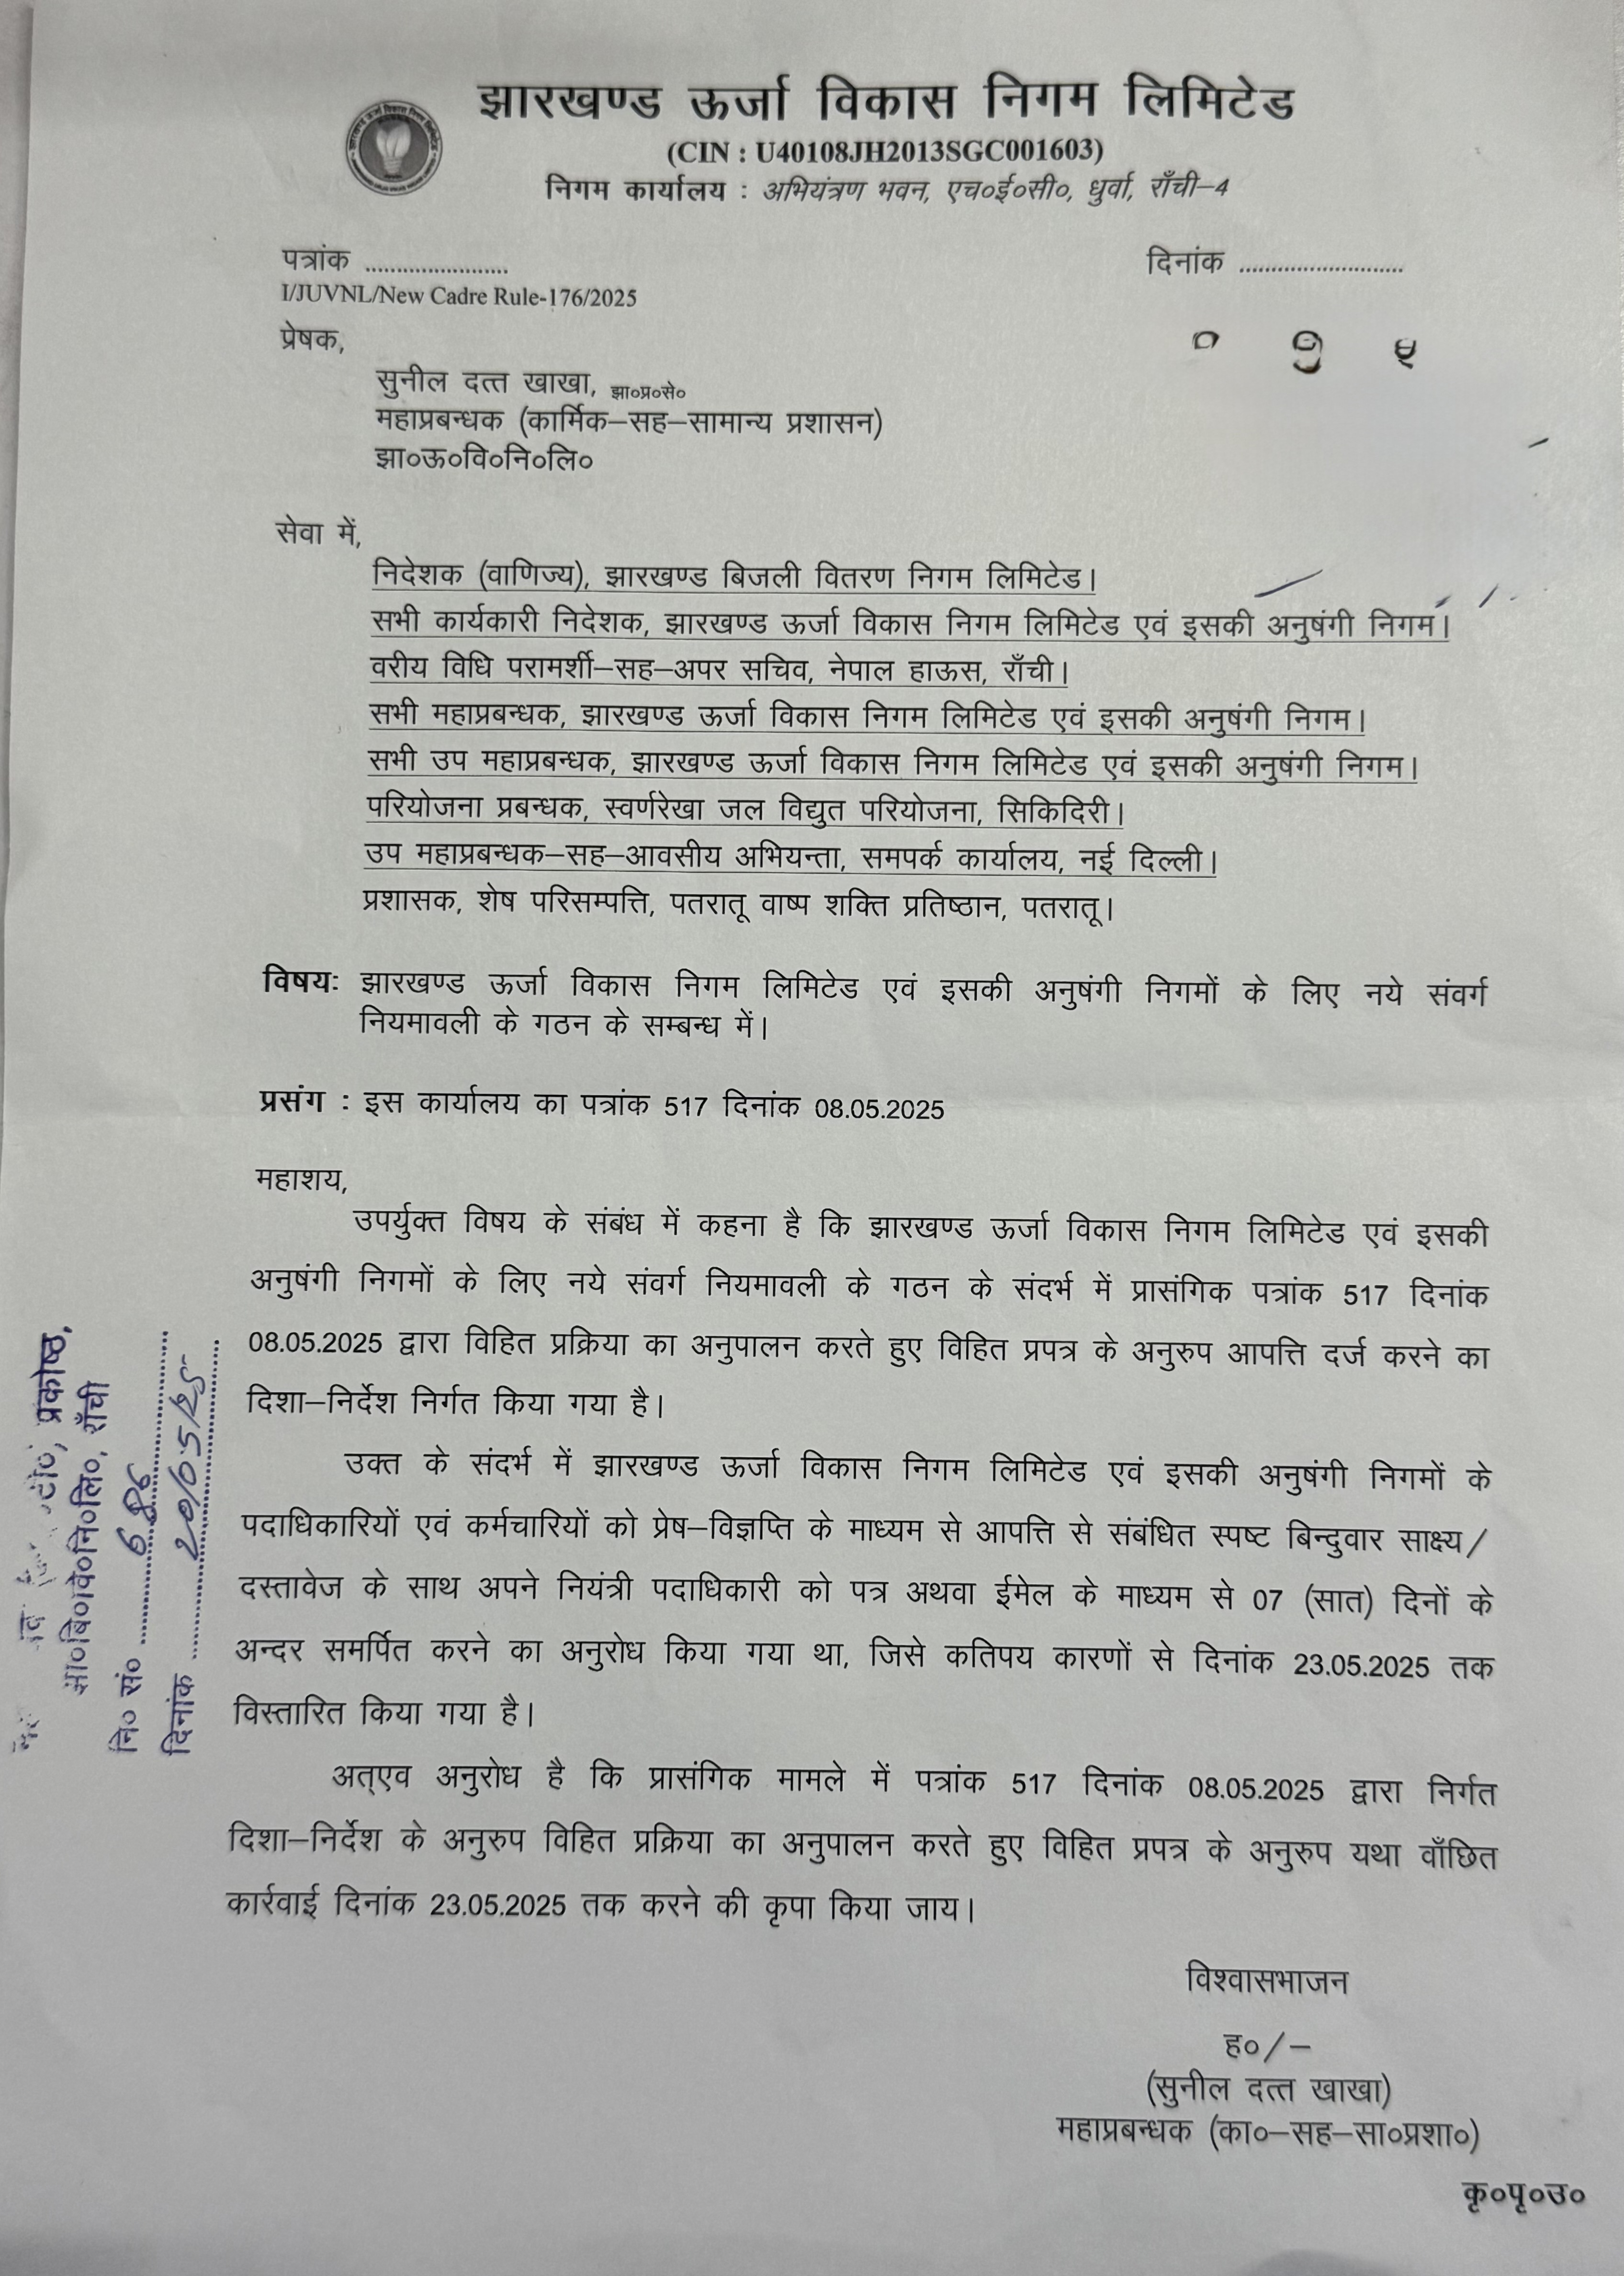 झारखण्ड ऊर्जा विकास निगम लिमिटेड
(CIN : U40108JH2013SGC001603)
निगम कार्यालय : अभियंत्रण भवन, एच०ई०सी०, धुर्वा, राँची–4
पत्रांक ....................... दिनांक ...........................
I/JUVNL/New Cadre Rule-176/2025
प्रेषक,
सुनील दत्त खाखा, झा०प्र०से०
महाप्रबन्धक (कार्मिक–सह–सामान्य प्रशासन)
झा०ऊ०वि०नि०लि०
सेवा में,
निदेशक (वाणिज्य), झारखण्ड बिजली वितरण निगम लिमिटेड।
सभी कार्यकारी निदेशक, झारखण्ड ऊर्जा विकास निगम लिमिटेड एवं इसकी अनुषंगी निगम।
वरीय विधि परामर्शी–सह–अपर सचिव, नेपाल हाऊस, राँची।
सभी महाप्रबन्धक, झारखण्ड ऊर्जा विकास निगम लिमिटेड एवं इसकी अनुषंगी निगम।
सभी उप महाप्रबन्धक, झारखण्ड ऊर्जा विकास निगम लिमिटेड एवं इसकी अनुषंगी निगम।
परियोजना प्रबन्धक, स्वर्णरेखा जल विद्युत परियोजना, सिकिदिरी।
उप महाप्रबन्धक–सह–आवसीय अभियन्ता, समपर्क कार्यालय, नई दिल्ली।
प्रशासक, शेष परिसम्पत्ति, पतरातू वाष्प शक्ति प्रतिष्ठान, पतरातू।
विषयः झारखण्ड ऊर्जा विकास निगम लिमिटेड एवं इसकी अनुषंगी निगमों के लिए नये संवर्ग
नियमावली के गठन के सम्बन्ध में।
प्रसंग : इस कार्यालय का पत्रांक 517 दिनांक 08.05.2025
महाशय,
उपर्युक्त विषय के संबंध में कहना है कि झारखण्ड ऊर्जा विकास निगम लिमिटेड एवं इसकी
अनुषंगी निगमों के लिए नये संवर्ग नियमावली के गठन के संदर्भ में प्रासंगिक पत्रांक 517 दिनांक
08.05.2025 द्वारा विहित प्रक्रिया का अनुपालन करते हुए विहित प्रपत्र के अनुरुप आपत्ति दर्ज करने का
दिशा–निर्देश निर्गत किया गया है।
उक्त के संदर्भ में झारखण्ड ऊर्जा विकास निगम लिमिटेड एवं इसकी अनुषंगी निगमों के
पदाधिकारियों एवं कर्मचारियों को प्रेष–विज्ञप्ति के माध्यम से आपत्ति से संबंधित स्पष्ट बिन्दुवार साक्ष्य/
दस्तावेज के साथ अपने नियंत्री पदाधिकारी को पत्र अथवा ईमेल के माध्यम से 07 (सात) दिनों के
अन्दर समर्पित करने का अनुरोध किया गया था, जिसे कतिपय कारणों से दिनांक 23.05.2025 तक
विस्तारित किया गया है।
अत्एव अनुरोध है कि प्रासंगिक मामले में पत्रांक 517 दिनांक 08.05.2025 द्वारा निर्गत
दिशा–निर्देश के अनुरुप विहित प्रक्रिया का अनुपालन करते हुए विहित प्रपत्र के अनुरुप यथा वाँछित
कार्रवाई दिनांक 23.05.2025 तक करने की कृपा किया जाय।
विश्वासभाजन
ह०/–
(सुनील दत्त खाखा)
महाप्रबन्धक (का०–सह–सा०प्रशा०)
कृ०पृ०उ०
प्रकोष्ठ,
झा०बि०वि०नि०लि०, राँची
नि० सं०
दिनांक 20/05/25